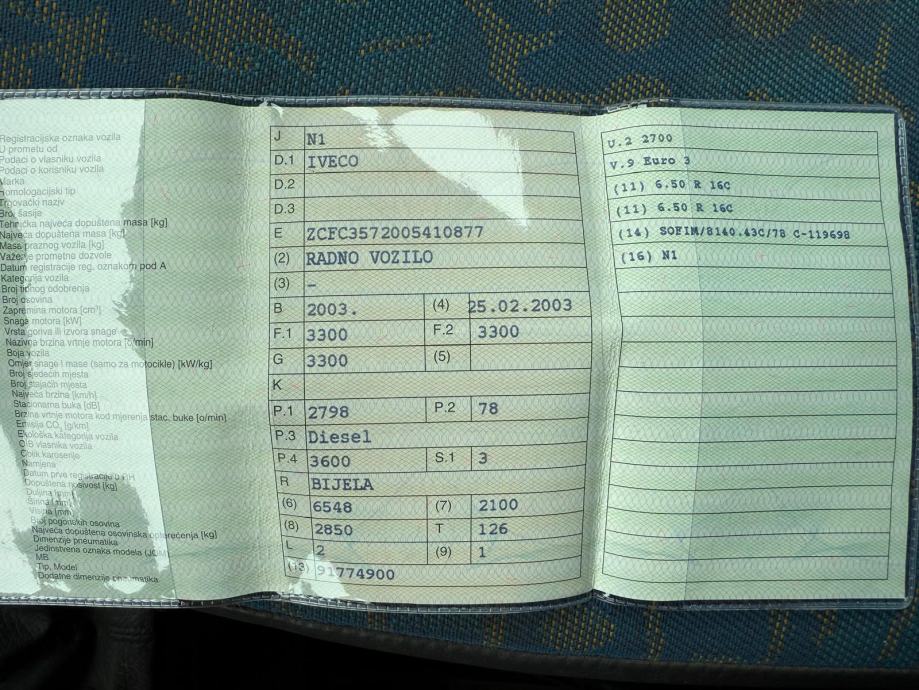 Registracijska oznaka vozila
U prometu od
Podaci o vlasniku vozila
Podaci o korisniku vozila
Marka
Homologacijski tip
Trgovački naziv
Broj šasije
Tehnička najveća dopuštena masa [kg]
Najveća dopuštena masa [kg]
Masa praznog vozila [kg]
Važenje prometne dozvole
Datum registracije reg. oznakom pod A
Kategorija vozila
Broj tipnog odobrenja
Broj osovina
Zapremina motora [cm³]
Snaga motora [kW]
Vrsta goriva ili izvora snage
Nazivna brzina vrtnje motora [o/min]
Boja vozila
Omjer snage i mase (samo za motocikle) [kW/kg]
Broj sjedećih mjesta
Broj stajaćih mjesta
Najveća brzina [km/h]
Stacionarna buka [dB]
Brzina vrtnje motora kod mjerenja stac. buke [o/min]
Emisija CO₂ [g/km]
Ekološka kategorija vozila
OIB vlasnika vozila
Oblik karoserije
Namjena
Datum prve registracije u RH
Dopuštena nosivost [kg]
Duljina [mm]
Širina [mm]
Visina [mm]
Broj pogonskih osovina
Najveća dopuštena osovinska opterećenja [kg]
Dimenzije pneumatika
Jedinstvena oznaka modela
MB
Tip, Model
Dodatne dimenzije pneumatika
J N1
D.1 IVECO
D.2
D.3
E ZCFC3572005410877
(2) RADNO VOZILO
(3) –
B 2003. (4) 25.02.2003
F.1 3300 F.2 3300
G 3300 (5)
K
P.1 2798 P.2 78
P.3 Diesel
P.4 3600 S.1 3
R BIJELA
(6) 6548 (7) 2100
(8) 2850 T 126
L 2 (9) 1
(13) 91774900
U.2 2700
V.9 Euro 3
(11) 6.50 R 16C
(11) 6.50 R 16C
(14) SOFIM/8140.43C/78 C-119698
(16) N1